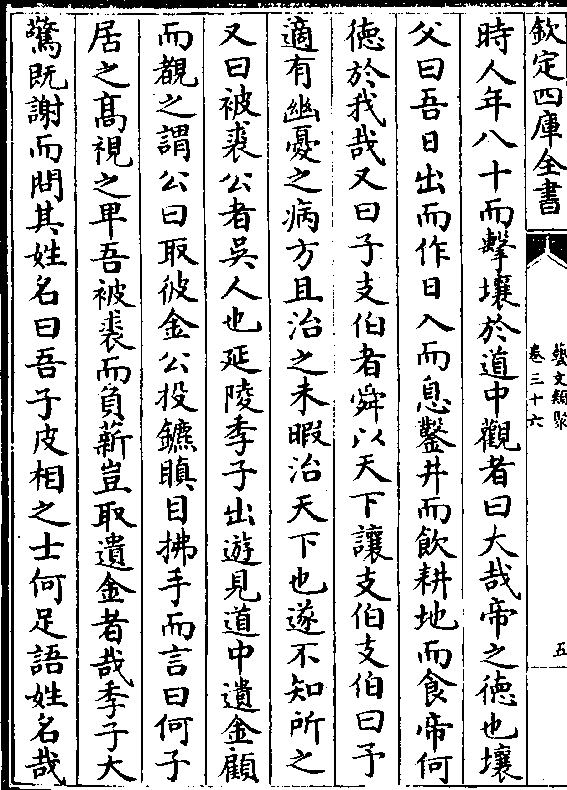 欽定四庫全書
藝文類聚
卷三十六
五
時人年八十而擊壤於道中觀者曰大哉帝之德也壤
父曰吾日出而作日入而息鑿井而飲耕地而食帝何
德於我哉又曰子支伯者舜以天下讓支伯支伯曰予
適有幽憂之病方且治之未暇治天下也遂不知所之
又曰被裘公者吳人也延陵季子出遊見道中遺金顧
而覩之謂公曰取彼金公投鐮瞋目拂手而言曰何子
居之髙視之卑吾被裘而負薪豈取遺金者哉季子大
驚既謝而問其姓名曰吾子皮相之士何足語姓名哉